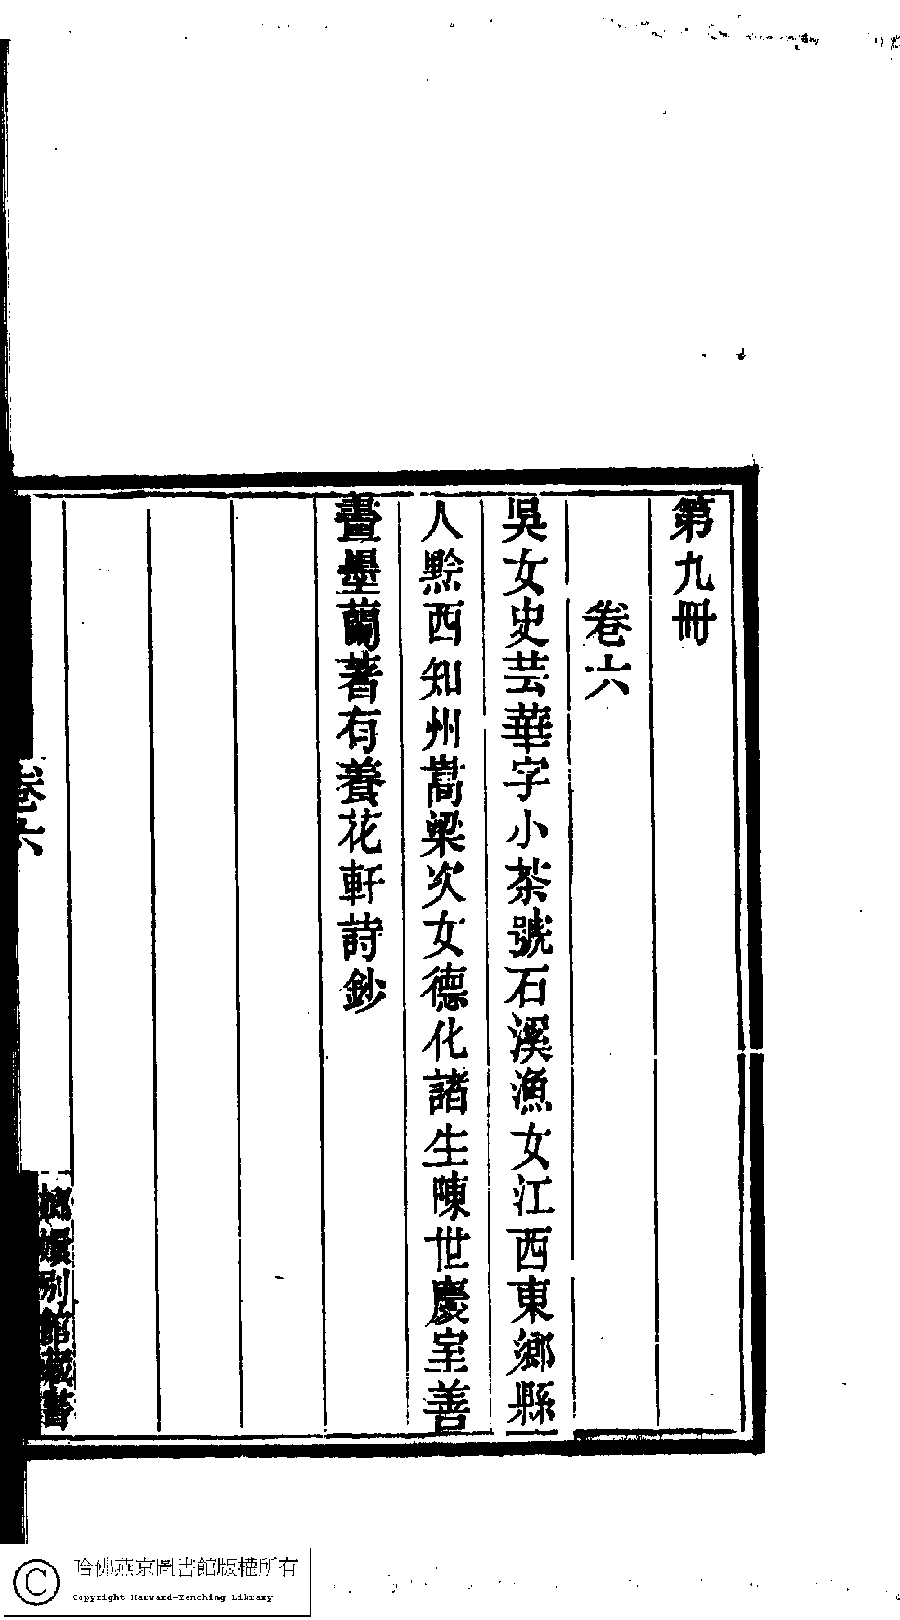 第九冊
卷六
吳女史芸華字小茶號石溪漁女江西東鄉縣
人黔西知州嵩梁次女德化諸生陳世慶室善
畫墨蘭著有養花軒詩鈔
卷六
嫏嬛別館藏書
哈佛燕京圖書館版權所有
Copyright Harvard-Yenching Library